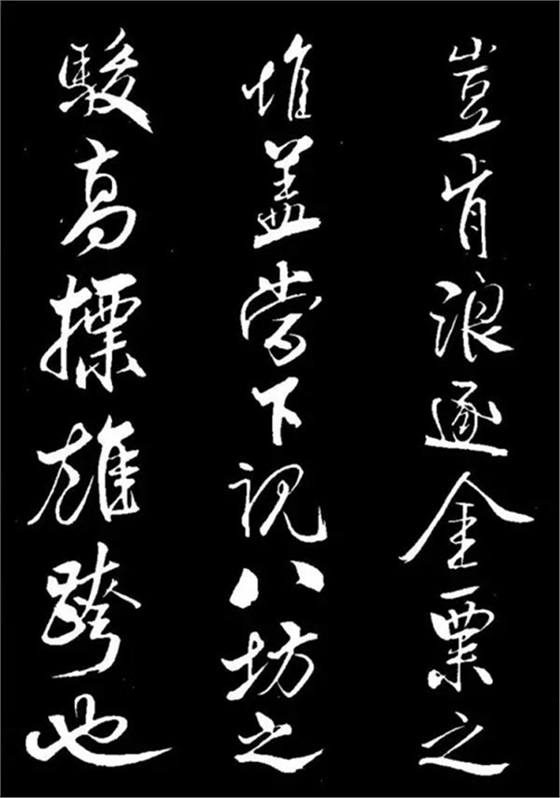 豈肯浪逐金粟之
堆盖當下視八坊之
駿高摽雄跨也